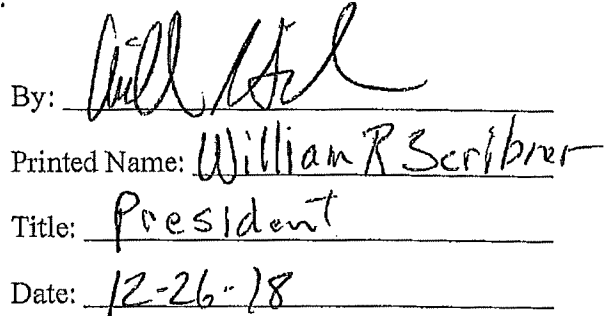 By:
Printed Name: William R Scribner
Title: President
Date: 12-26-18